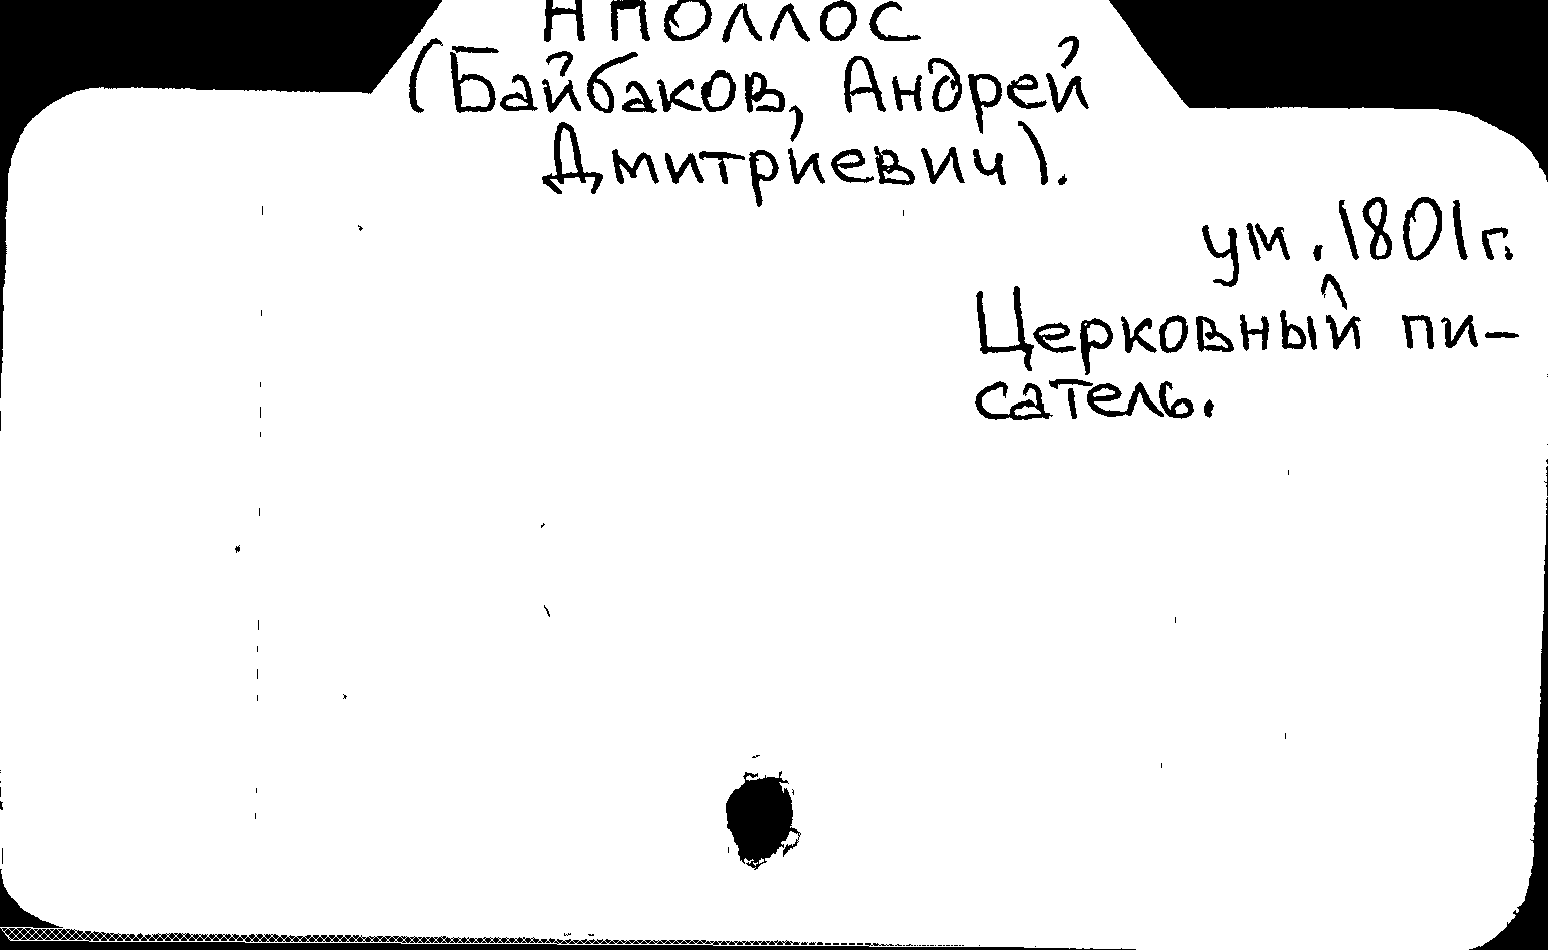 Аполлос
(Байбаков, Андрей
Дмитриевич).
ум. 1801 г.
Церковный пи-
сатель.